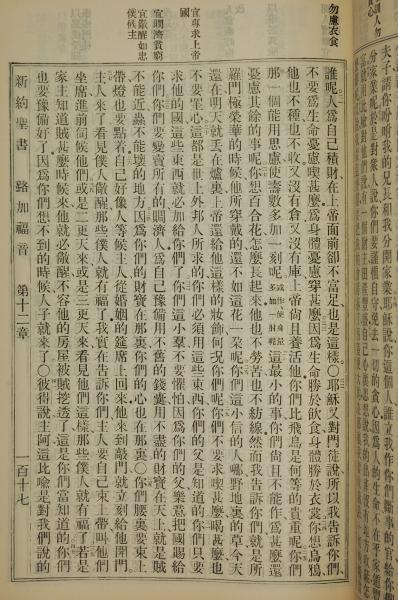 夫子請你吩咐我的兄長和我分開家業耶穌說你這個人誰立我作你們斷事的官給你們
分家業呢於是對衆人說你們要謹慎自守免去一切的貪心因爲人的生命不在乎家道豐
勿慮衣食
宜專求上帝國
宜賙濟貧窮
宜儆醒如忠僕俟主
誰呢人爲自己積財在上帝面前卻不富足也是這樣○耶穌又對門徒說所以我告訴你們
不要爲生命憂慮喫甚麼爲身體憂慮穿甚麼因爲生命勝於飲食身體勝於衣裳你想烏鴉
他也不種也不收又沒有倉又沒有庫上帝尚且養活他你們比飛鳥是何等的貴重呢你們
那一個能用思慮使壽數多加一刻呢或作使身量多加一肘呢這最小的事你們尚且不能作爲甚麼還
憂慮其餘的事呢你想百合花怎麼長起來他也不勞苦也不紡線然而我告訴你們就是所
羅門極榮華的時候他所穿戴的還不如這花一朶呢你們這小信的人哪野地裏的草今天
還在明天就丟在爐裏上帝還給他這樣的妝飾何況你們呢你們不要求喫甚麼喝甚麼也
不要罣心這都是世上外邦人所求的你們必須用這些東西你們的父是知道的你們只要
求他的國這些東西就必加給你們了你們這小羣不要懼怕因爲你們的父樂意把國賜給
你們你們要變賣所有的賙濟人爲自己豫備用不舊的錢囊用不盡的財寶在天上就是賊
不能近蟲不能壞的地方因爲你們的財寶在那裏你們的心也在那裏○你們腰裏要束上
帶燈也要點着自己好像人等候主人從婚姻的筵席上回來他來到敲門就立刻給他開門
主人來了看見僕人儆醒那些僕人就有福了我實在告訴你們主人要自己束上帶叫他們
坐席進前伺候他們或是二更天來或是三更天來看見他們這樣那些僕人就有福了若是
家主知道賊甚麼時候來他就必儆醒不容他的房屋被賊挖透了這是你們當知道的你們
也要豫備好了因爲你們想不到的時候人子就來了○彼得說主阿這比喻是對我們說的
新約聖書 路加福音 第十二章 一百十七